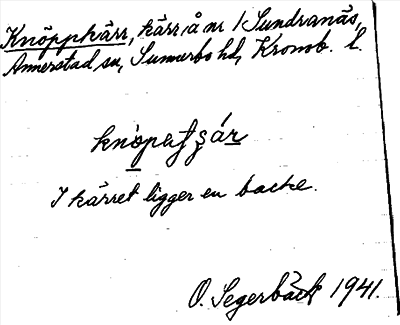 Knöppkärr, kärr å nr 1 Sundranäs,
Annerstad sn, Sunnerbo hd, Kronob. l.
I kärret ligger en backe.
O. Segerbäck 1941.